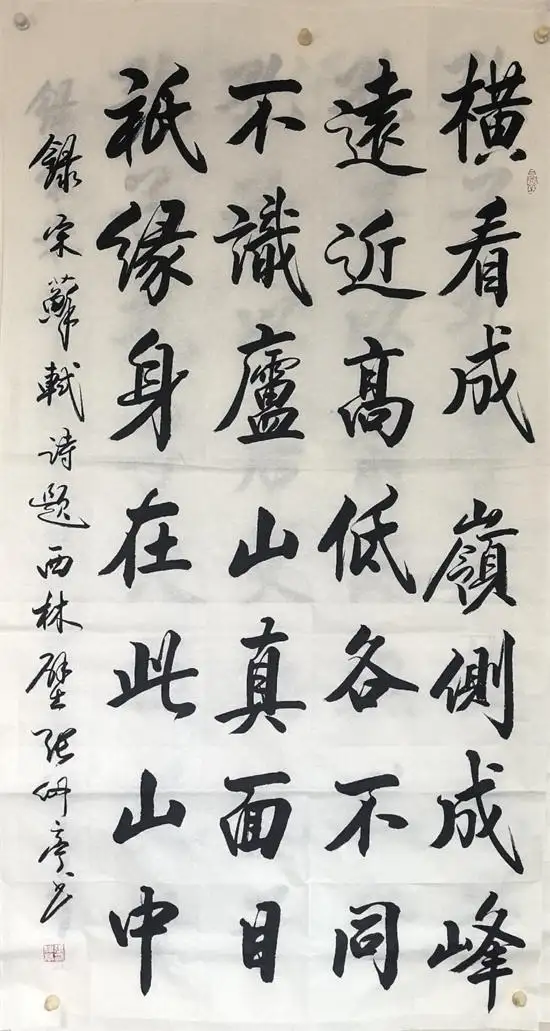 横看成嶺側成峰
遠近高低各不同
不識廬山真面目
祇緣身在此山中
録宋蘇軾诗题西林壁张仲亭书